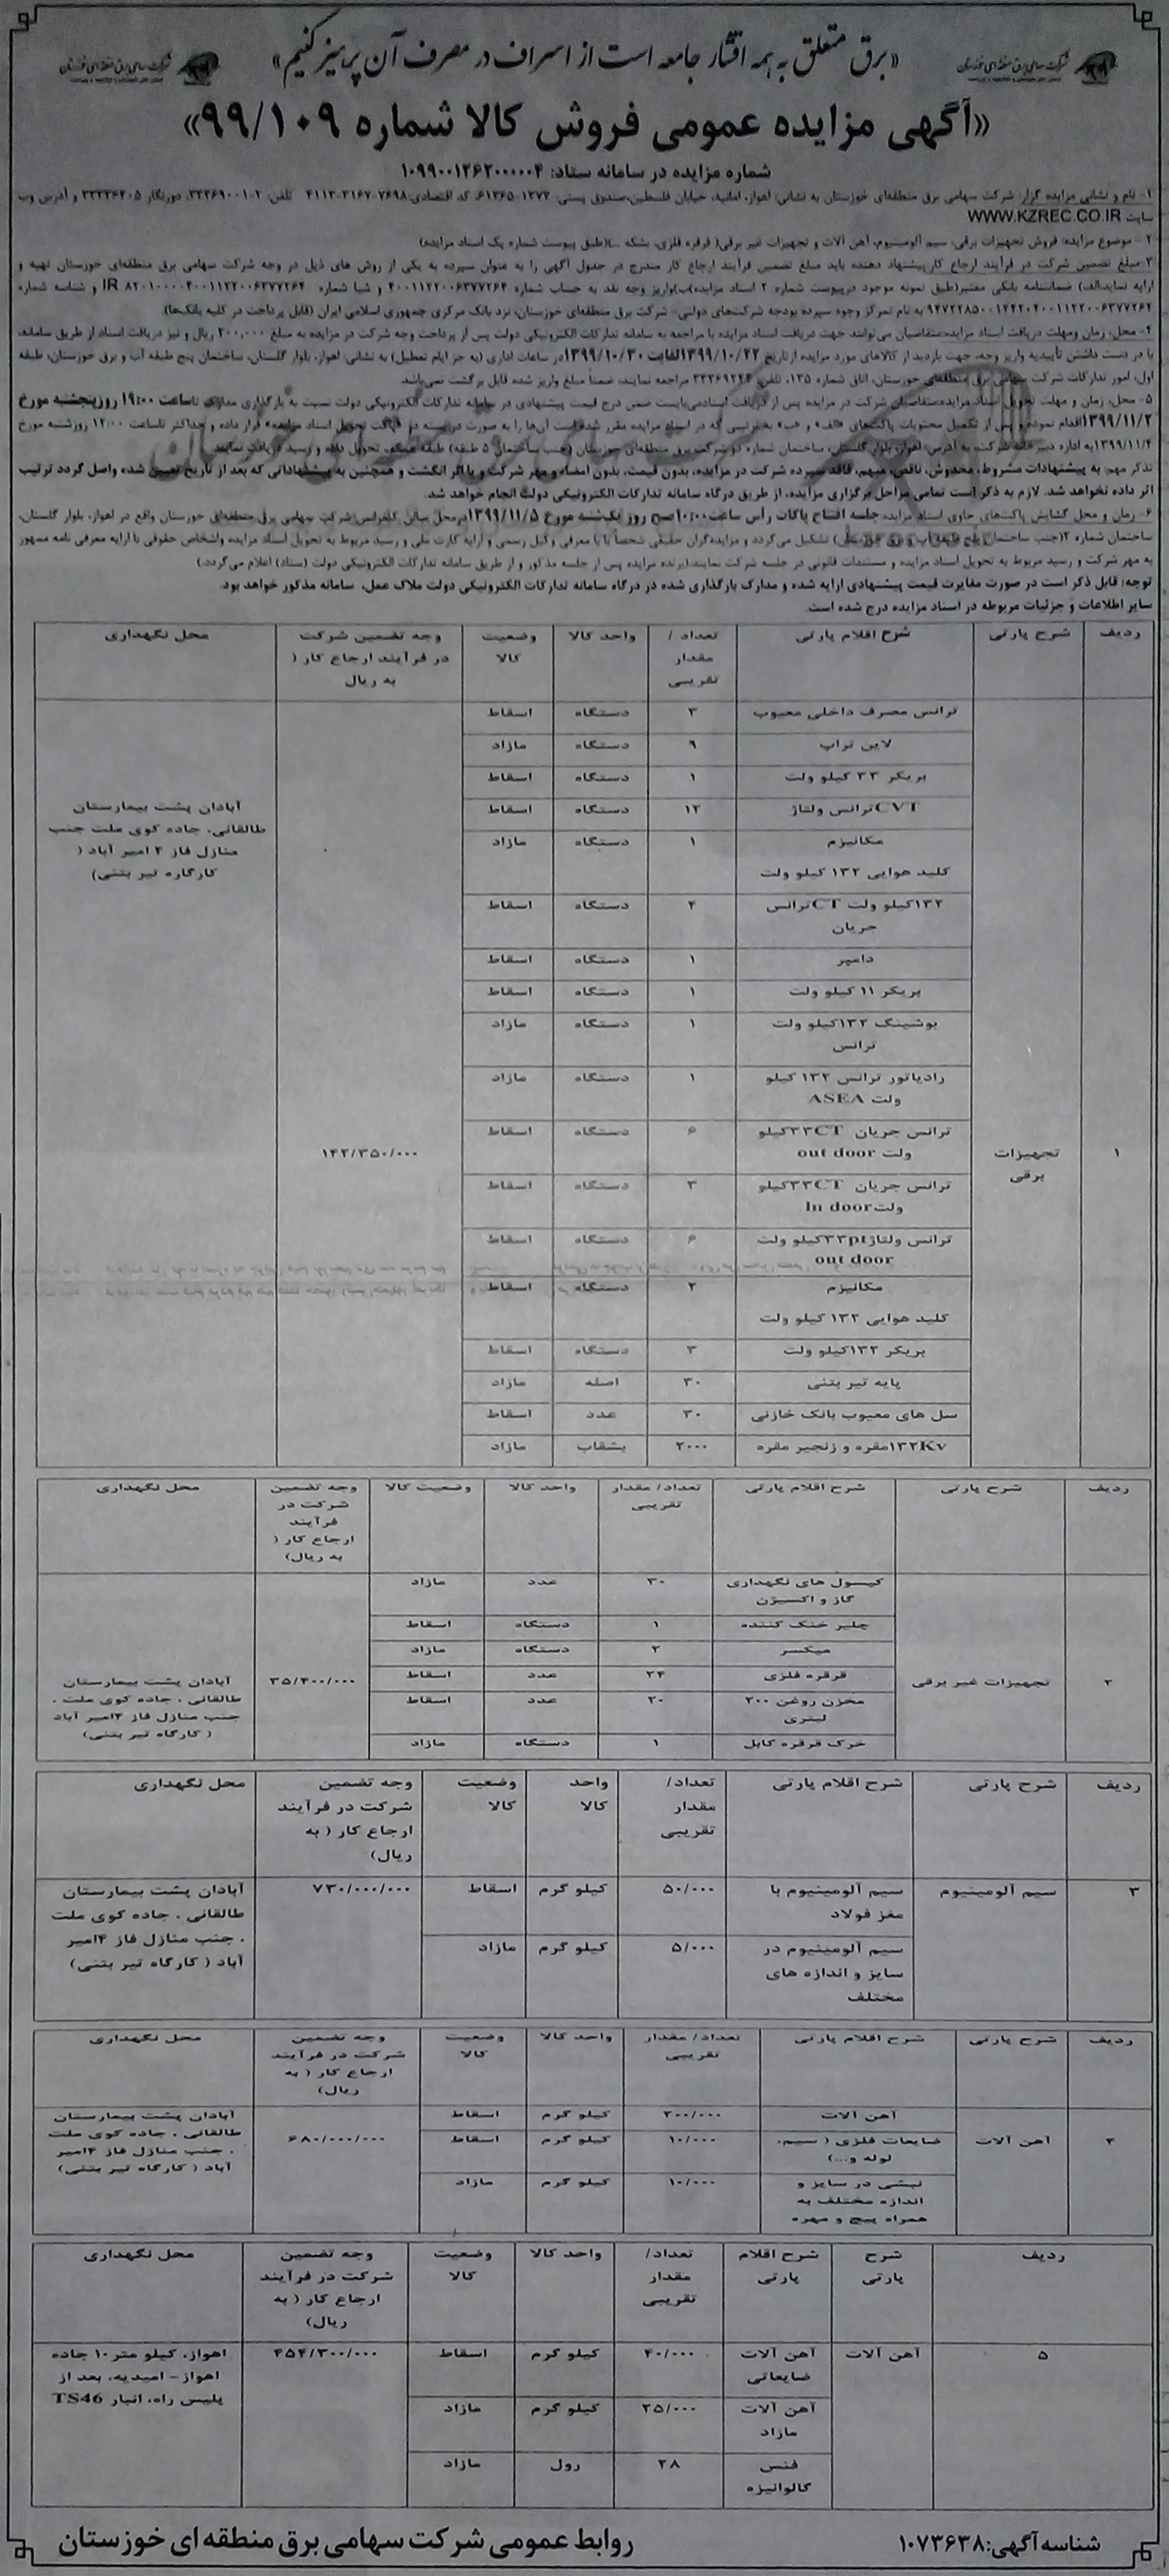 «برق متعلق به همه اقشار جامعه است از اسراف در مصرف آن پرهیز کنیم»
شرکت سهامی برق منطقه‌ای خوزستان
شرکت سهامی برق منطقه‌ای خوزستان
«آگهی مزایده عمومی فروش کالا شماره ۹۹/۱۰۹»
شماره مزایده در سامانه ستاد: ۱۰۹۹۰۰۱۲۶۲۰۰۰۰۰۴
۱- نام و نشانی مزایده گزار: شرکت سهامی برق منطقه‌ای خوزستان به نشانی: اهواز، امانیه، خیابان فلسطین،صندوق پستی: ۱۳۷۳-۶۱۳۶۵، کد اقتصادی: ۷۶۹۸-۳۱۶۷-۴۱۱۳ تلفن: ۲-۳۳۳۶۹۰۰۱، دورنگار و آدرس وب
سایت WWW.KZREC.CO.IR
۲- موضوع مزایده: فروش تجهیزات برقی، سیم آلومینیوم، آهن آلات و تجهیزات غیر برقی( قرقره فلزی، بشکه ...)(طبق پیوست شماره یک اسناد مزایده)
۳-مبلغ تضمین شرکت در فرآیند ارجاع کار:پیشنهاد دهنده باید مبلغ تضمین فرآیند ارجاع کار مندرج در جدول آگهی را به عنوان سپرده به یکی از روش های ذیل در وجه شرکت سهامی برق منطقه‌ای خوزستان تهیه و
ارایه نماید:الف) ضمانتنامه بانکی معتبر(طبق نمونه موجود درپیوست شماره ۲ اسناد مزایده)ب)واریز وجه نقد به حساب شماره ۴۰۰۱۱۲۲۰۰۶۳۷۷۲۶۴ و شبا شماره IR ۸۲۰۱۰۰۰۰۴۰۰۱۱۲۲۰۰۶۳۷۷۲۶۴ و شناسه شماره
به نام تمرکز وجوه سپرده بودجه شرکت‌های دولتی- شرکت برق منطقه‌ای خوزستان، نزد بانک مرکزی جمهوری اسلامی ایران (قابل پرداخت در کلیه بانک‌ها).
۴- محل، زمان ومهلت دریافت اسناد مزایده:متقاضیان می‌توانند جهت دریافت اسناد مزایده با مراجعه به سامانه تدارکات الکترونیکی دولت پس از پرداخت وجه شرکت در مزایده به مبلغ ۲۰۰,۰۰۰ ریال و نیز دریافت اسناد از طریق سامانه،
با در دست داشتن تأییدیه واریز وجه، جهت بازدید از کالاهای مورد مزایده ازتاریخ ۱۳۹۹/۱۰/۲۲لغایت ۱۳۹۹/۱۰/۳۰در ساعات اداری (به جز ایام تعطیل) به نشانی: اهواز، بلوار گلستان، ساختمان پنج طبقه آب و برق خوزستان، طبقه
اول، امور تدارکات شرکت سهامی برق منطقه‌ای خوزستان، اتاق شماره ۱۳۵، تلفن: ۳۳۳۶۹۲۴۴ مراجعه نمایند، ضمناً مبلغ واریز شده قابل برگشت نمی‌باشد.
۵- محل، زمان و مهلت تحویل اسناد مزایده:متقاضیان شرکت در مزایده پس از دریافت اسنادمی‌بایست ضمن درج قیمت پیشنهادی در سامانه تدارکات الکترونیکی دولت نسبت به بارگذاری مدارک تاساعت ۱۹:۰۰ روزپنجشنبه مورخ
۱۳۹۹/۱۱/۲اقدام نموده و پس از تکمیل محتویات پاکت‌های «الف» و «ب» به ترتیبی که در اسناد مزایده مقرر شده است آن‌ها را به صورت دربسته در «پاکت تحویل اسناد مزایده» قرار داده و حداکثر تاساعت ۱۲:۰۰ روزشنبه مورخ
۱۳۹۹/۱۱/۴به اداره دبیرخانه شرکت به آدرس: اهواز، بلوار گلستان، ساختمان شماره دو شرکت برق منطقه‌ای خوزستان (جنب ساختمان ۵ طبقه) طبقه همکف، تحویل داده و رسید دریافت نمایند.
تذکر مهم: به پیشنهادات مشروط، مخدوش، ناقص، مبهم، فاقد سپرده شرکت در مزایده، بدون قیمت، بدون امضاء و مهر شرکت و یا اثر انگشت و همچنین به پیشنهاداتی که بعد از تاریخ تعیین شده واصل گردد ترتیب
اثر داده نخواهد شد. لازم به ذکر است تمامی مراحل برگزاری مزایده، از طریق درگاه سامانه تدارکات الکترونیکی دولت انجام خواهد شد.
۶- زمان و محل گشایش پاکت‌های حاوی اسناد مزایده: جلسه افتتاح پاکات رأس ساعت۱۰:۰۰صبح روز یکشنبه مورخ ۱۳۹۹/۱۱/۵درمحل سالن کنفرانس شرکت سهامی برق منطقه‌ای خوزستان واقع در اهواز، بلوار گلستان،
ساختمان شماره ۲(جنب ساختمان پنج طبقه آب و برق خوزستان) تشکیل می‌گردد و مزایده‌گران حقیقی شخصاً یا با معرفی وکیل رسمی و ارایه کارت ملی و رسید مربوط به تحویل اسناد مزایده واشخاص حقوقی با ارایه معرفی نامه ممهور
به مهر شرکت و رسید مربوط به تحویل اسناد مزایده و مستندات قانونی در جلسه شرکت نمایند.(برنده مزایده پس از جلسه مذکور و از طریق سامانه تدارکات الکترونیکی دولت (ستاد) اعلام می‌گردد.)
توجه: قابل ذکر است در صورت مغایرت قیمت پیشنهادی ارایه شده و مدارک بارگذاری شده در درگاه سامانه تدارکات الکترونیکی دولت ملاک عمل، سامانه مذکور خواهد بود.
سایر اطلاعات و جزئیات مربوطه در اسناد مزایده درج شده است.
ردیف شرح پارتی شرح اقلام پارتی تعداد / مقدار تقریبی واحد کالا وضعیت کالا وجه تضمین شرکت در فرآیند ارجاع کار ( به ریال محل نگهداری
ترانس مصرف داخلی معیوب ۳ دستگاه اسقاط
لاین تراپ ۹ دستگاه مازاد
بریکر ۳۳ کیلو ولت ۱ دستگاه اسقاط
CVTترانس ولتاژ ۱۲ دستگاه اسقاط
مکانیزم کلید هوایی ۱۳۲ کیلو ولت ۱ دستگاه مازاد
آبادان پشت بیمارستان
طالقانی، جاده کوی ملت جنب
منازل فاز ۴ امیر آباد (
کارگاره تیر بتنی)
۱۳۲کیلو ولت CTترانس جریان ۴ دستگاه اسقاط
دامپر ۱ دستگاه اسقاط
بریکر ۱۱ کیلو ولت ۱ دستگاه اسقاط
بوشینگ ۱۳۲کیلو ولت ترانس ۱ دستگاه مازاد
رادیاتور ترانس ۱۳۲ کیلو ولت ASEA ۱ دستگاه مازاد
۱ تجهیزات برقی ترانس جریان ۳۳CTکیلو ولت out door ۶ دستگاه اسقاط ۱۴۲/۳۵۰/۰۰۰
ترانس جریان ۳۳CTکیلو ولتIn door ۳ دستگاه اسقاط
ترانس ولتاژ۳۳ptکیلو ولت out door ۶ دستگاه اسقاط
مکانیزم کلید هوایی ۱۳۲ کیلو ولت ۲ دستگاه اسقاط
بریکر ۱۳۲کیلو ولت ۳ دستگاه اسقاط
پایه تیر بتنی ۳۰ اصله مازاد
سل های معیوب بانک خازنی ۳۰ عدد اسقاط
۱۳۲Kvمقره و زنجیر مقره ۲۰۰۰ بشقاب مازاد
ردیف شرح پارتی شرح اقلام پارتی تعداد/ مقدار تقریبی واحد کالا وضعیت کالا وجه تضمین شرکت در فرآیند ارجاع کار ( به ریال) محل نگهداری
کپسول های نگهداری گاز و اکسیژن ۳۰ عدد مازاد
چلیر خنک کننده ۱ دستگاه اسقاط
میکسر ۲ دستگاه مازاد
۲ تجهیزات غیر برقی قرقره فلزی ۲۴ عدد اسقاط ۳۵/۴۰۰/۰۰۰
آبادان پشت بیمارستان
طالقانی ، جاده کوی ملت ،
جنب منازل فاز ۴امیر آباد
( کارگاه تیر بتنی)
مخزن روغن ۲۰۰ لیتری ۲۰ عدد اسقاط
خرک قرقره کابل ۱ دستگاه مازاد
ردیف شرح پارتی شرح اقلام پارتی تعداد/ مقدار تقریبی واحد کالا وضعیت کالا وجه تضمین شرکت در فرآیند ارجاع کار ( به ریال) محل نگهداری
۳ سیم آلومینیوم سیم آلومینیوم با مغز فولاد ۵۰/۰۰۰ کیلو گرم اسقاط ۷۳۰/۰۰۰/۰۰۰
آبادان پشت بیمارستان
طالقانی ، جاده کوی ملت
، جنب منازل فاز ۴امیر
آباد ( کارگاه تیر بتنی)
سیم آلومینیوم در سایز و اندازه های مختلف ۵/۰۰۰ کیلو گرم مازاد
ردیف شرح پارتی شرح اقلام پارتی تعداد/ مقدار تقریبی واحد کالا وضعیت کالا وجه تضمین شرکت در فرآیند ارجاع کار ( به ریال) محل نگهداری
آهن آلات ۲۰۰/۰۰۰ کیلو گرم اسقاط
۴ آهن آلات ضایعات فلزی ( سیم، لوله و...) ۱۰/۰۰۰ کیلو گرم اسقاط ۶۸۰/۰۰۰/۰۰۰
آبادان پشت بیمارستان
طالقانی ، جاده کوی ملت
، جنب منازل فاز ۴امیر
آباد ( کارگاه تیر بتنی)
نبشی در سایز و اندازه مختلف به همراه پیچ و مهره ۱۰/۰۰۰ کیلو گرم مازاد
ردیف شرح پارتی شرح اقلام پارتی تعداد/ مقدار تقریبی واحد کالا وضعیت کالا وجه تضمین شرکت در فرآیند ارجاع کار ( به ریال) محل نگهداری
۵ آهن آلات آهن آلات ضایعاتی ۴۰/۰۰۰ کیلو گرم اسقاط ۴۵۴/۳۰۰/۰۰۰
اهواز، کیلو متر ۱۰ جاده
اهواز - امیدیه، بعد از
پلیس راه، انبار TS46
آهن آلات مازاد ۲۵/۰۰۰ کیلو گرم مازاد
فنس گالوانیزه ۲۸ رول مازاد
شناسه آگهی:۱۰۷۳۶۳۸
روابط عمومی شرکت سهامی برق منطقه ای خوزستان